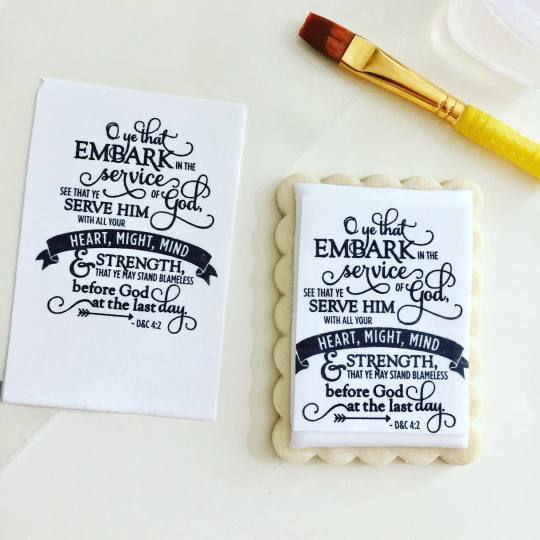 O ye that
EMBARK IN THE
service
SEE THAT YE OF God,
SERVE HIM
WITH ALL YOUR
HEART, MIGHT, MIND
& STRENGTH,
THAT YE MAY STAND BLAMELESS
before God
at the last day.
- D&C 4:2
O ye that
EMBARK IN THE
service
SEE THAT YE OF God,
SERVE HIM
WITH ALL YOUR
HEART, MIGHT, MIND
& STRENGTH,
THAT YE MAY STAND BLAMELESS
before God
at the last day.
- D&C 4:2